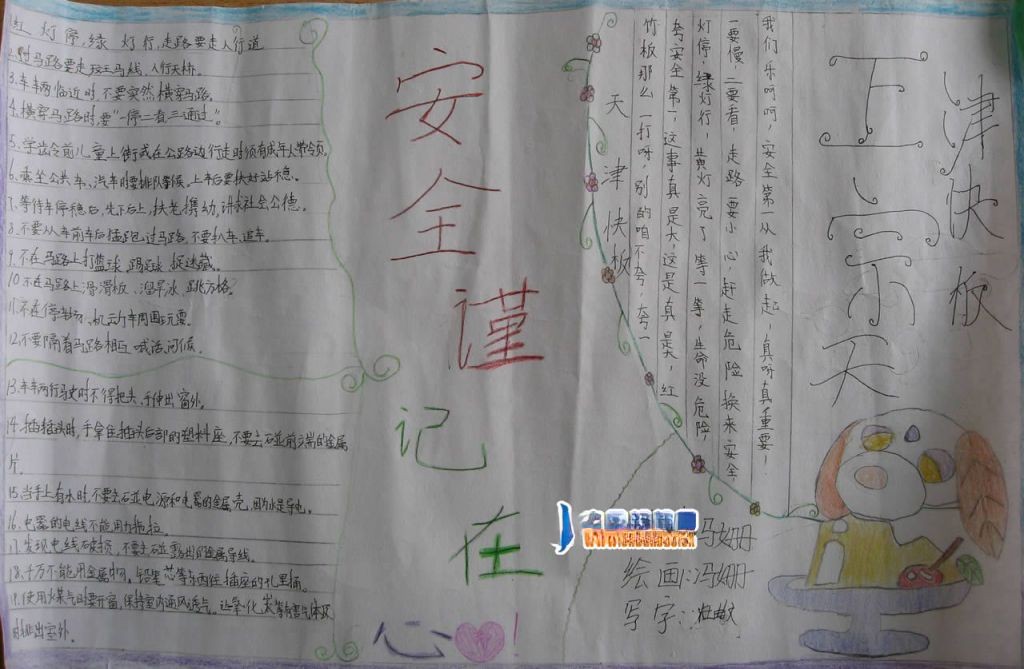 1.红灯停,绿灯行,走路要走人行道
2.过马路要走斑马线,人行天桥。
3.车车两临近时,不要突然横穿马路。
4.横穿马路时,要"一停二看三通过"。
5.学龄前儿童上街或在公路边行走时须有成年人带领。
6.乘坐公共车、汽车时要排队等候,上车后要扶好站稳。
7.等待车停稳后,先下后上,扶老携幼,讲求社会公德。
8.不要从车前车后猛跑,过马路,不要扒车、追车。
9.不在马路上打篮球、踢足球、捉迷藏。
10.不在马路上滑滑板、溜旱冰、跳方格。
11.不在停车场、机动车周围玩耍。
12.不要隔着马路相互喊话、问候。
13.车车两行驶时不得把头、手伸出窗外。
14.插插头时,手拿住插头后部的塑料座,不要去碰前端的金属
片。
15.当手上有水时,不要去碰电源和电器的金属壳,因为水是导电。
16.电器的电线不能用力拖拉。
17.发现电线破损,不要去碰露出的金属导线。
18.千万不能用金属 铅笔芯等东西往插座的孔里捅。
19.使用煤气时要开窗,保持室内通风透气。让 氧化炭等有害气体及
时排出室外。
安全谨记在心!
天津快板
竹板那么一打呀,别的咱不夸,夸一
夸安全第一,这事真是大,这是真是大,红
灯停,绿灯行,黄灯亮了等一等,生命没危险,
一要慢,二要看,走路要小心,赶走危险换来安全,
我们乐呵呵,安全第一从我做起,真呀真重要!
津快板
冯姗
绘画:冯姗
写字: